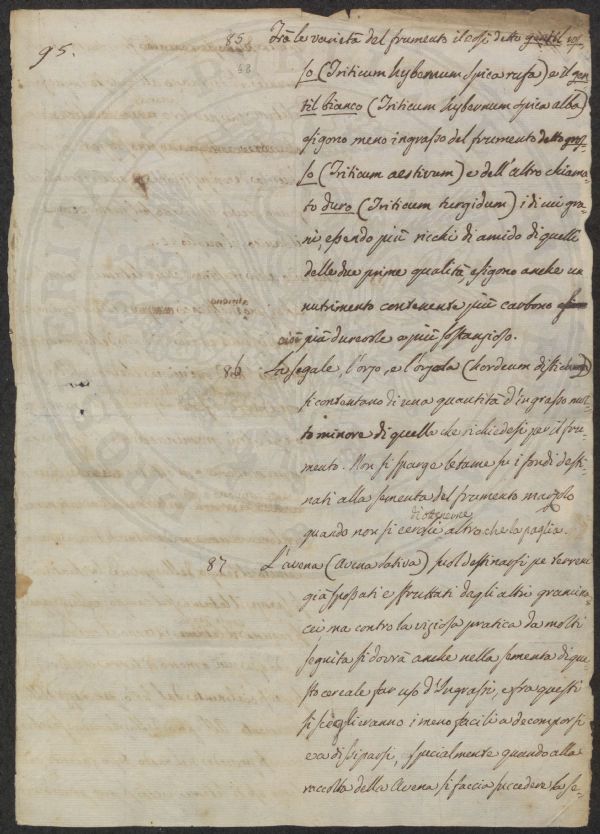 95.
85 Frà le varietà del frumento il così detto gentil ros-
68
so (Triticum hybernum spica rufa) e il gen-
til bianco (Triticum hybernum spica alba)
esigono meno ingrasso del frumento detto gros-
so (Triticum aestivum) e dell'altro chiama-
to duro (Triticum turgidum) i di cui gra-
ni, essendo più ricchi di amido di quelli
delle due prime qualità, esigono anche un
nutrimento contenente più carbonio
cioè più durevole e più sostanzioso.
86 La segale, l'orzo, e l'orzola (hordeum distichum)
si contentano di una quantità d'ingrasso mol-
to minore di quella che richiedesi per il fru-
mento. Non si sparge letame su i fondi desti-
nati alla sementa del frumento marzolo
quando non si cerchi di ottenerne altro che la paglia.
87 L'avena (Avena sativa) suol destinarsi pe terreni
già spossati e sfruttati dagli altri gramina-
cei, ma contro la viziosa pratica da molti
seguita si dovrà anche nella sementa di que-
sto cereale far uso d'Ingrassi, e fra questi
si sceglieranno i meno facili a decomporsi
e a dissiparsi, specialmente quando alla
raccolta della Avena si faccia succedere la se-